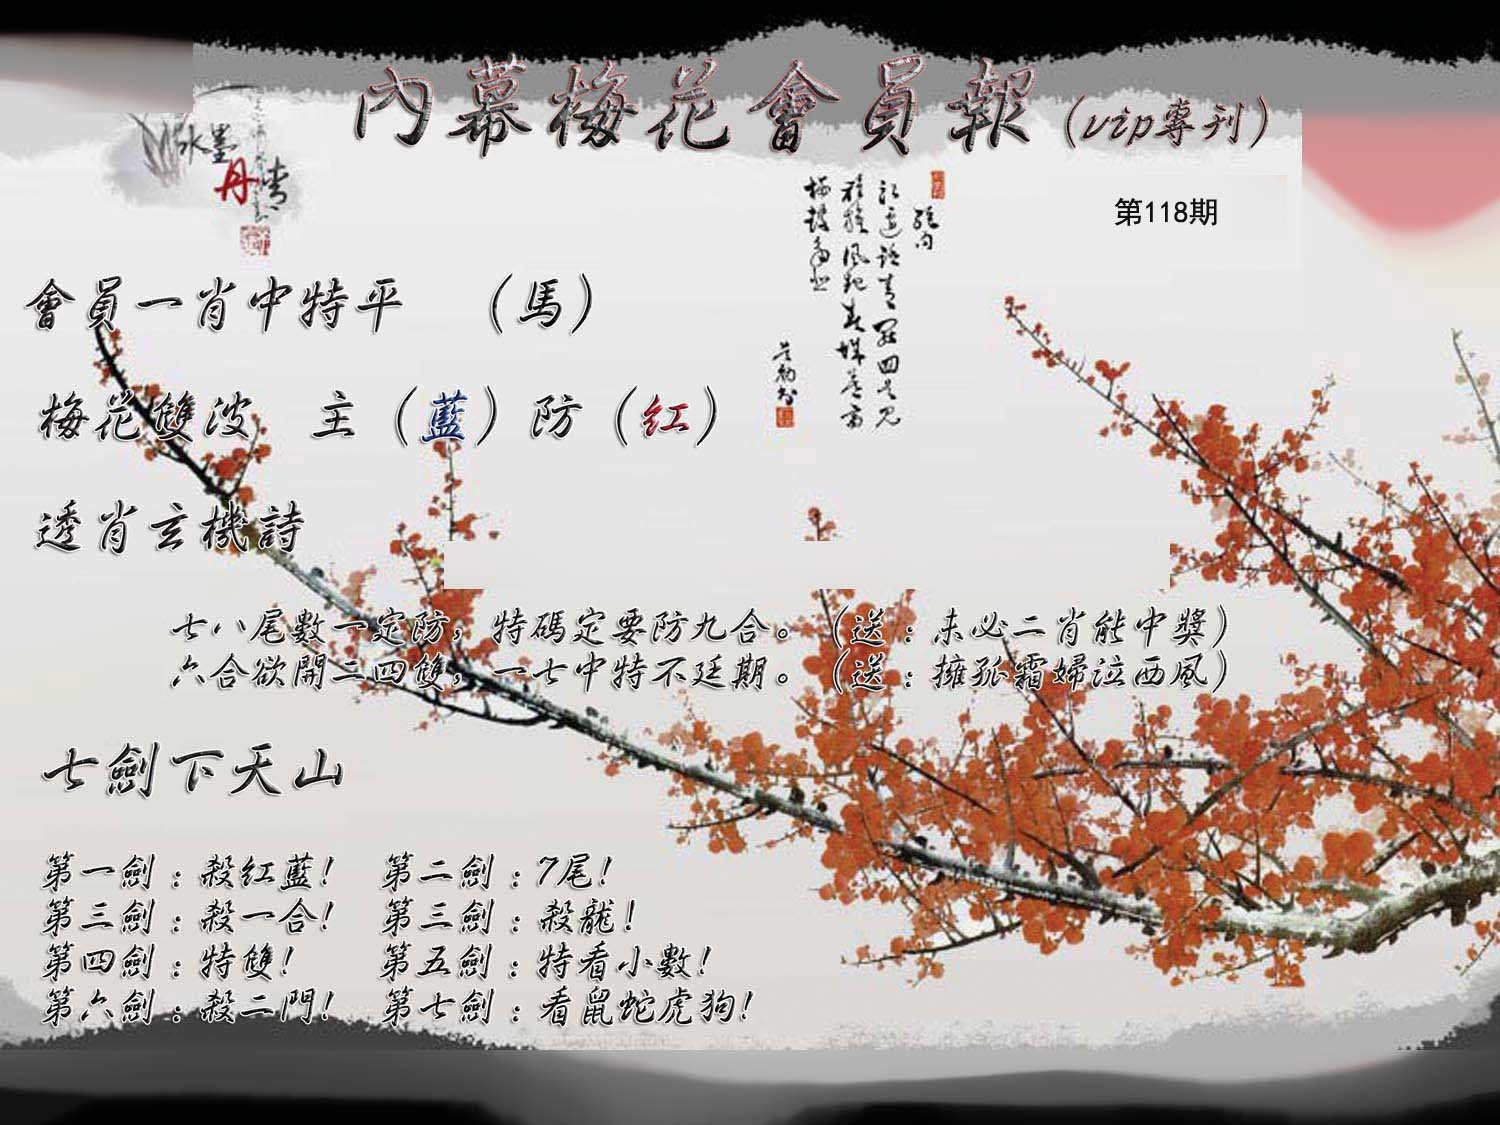 內幕梅花會員報（vip專刊）
水墨
丹青
第118期
會員一肖中特平　（馬）
梅花雙波　主（藍）防（红）
透肖玄機詩
七八尾數一定防，特碼定要防九合。（送：未必二肖能中獎）
六合欲開二四雙，一七中特不廷期。（送：擁孤霜婦泣西風）
七劍下天山
第一劍：殺紅藍！　第二劍：7尾！
第三劍：殺一合！　第三劍：殺龍！
第四劍：特雙！　第五劍：特看小數！
第六劍：殺二門！　第七劍：看鼠蛇虎狗！